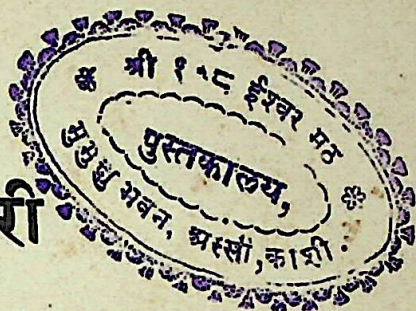 ❀ श्री १०८ ईश्वर मठ ❀
पुस्तकालय,
मुमुक्षु भवन, अस्सी, काशी.
री